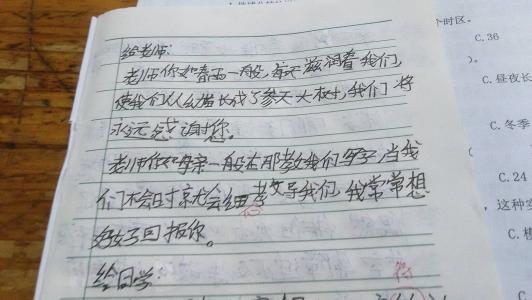 给老师:
老师你如春雨一般,每天滋润着我们,
使我们从幼苗长成了参天大树,我们将
永远感谢您。
老师你如母亲一般在那教我们写字,当我
们不会时,您就会细心教导我们,我常常想
好好回报你。
给同学:
个时区。
C. 36
)。
C. 昼夜长
C. 冬季
C. 24
,这种
C.